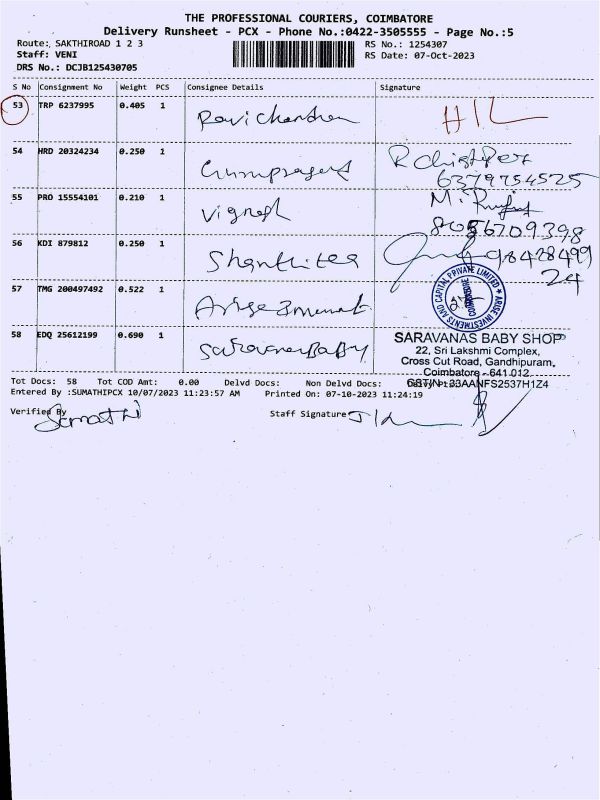 THE PROFESSIONAL COURIERS, COIMBATORE
Delivery Runsheet - PCX - Phone No.:0422-3505555 - Page No.:5
Route: SAKTHIROAD 1 2 3
RS No.: 1254307
Staff: VENI
RS Date: 07-Oct-2023
DRS No.: DCJB125430705
S No Consignment No Weight PCS Consignee Details Signature
53 TRP 6237995 0.405 1 Ravichandran HIL
54 HRD 20324234 0.250 1
6379754525
55 PRO 15554101 0.210 1 Vignesh M.
8056709398
56 KDI 879812 0.250 1
98428499
24
57 TMG 200497492 0.522 1 Arise
ARISE INVESTMENTS AND CAPITAL PRIVATE LIMITED
COIMBATORE
58 EDQ 25612199 0.690 1 Saravana Baby
SARAVANAS BABY SHOP
22, Sri Lakshmi Complex,
Cross Cut Road, Gandhipuram,
Coimbatore - 641 012.
GSTIN : 33AANFS2537H1Z4
Tot Docs: 58 Tot COD Amt: 0.00 Delvd Docs: Non Delvd Docs:
Entered By :SUMATHIPCX 10/07/2023 11:23:57 AM Printed On: 07-10-2023 11:24:19
Verified By Sumathi
Staff Signature